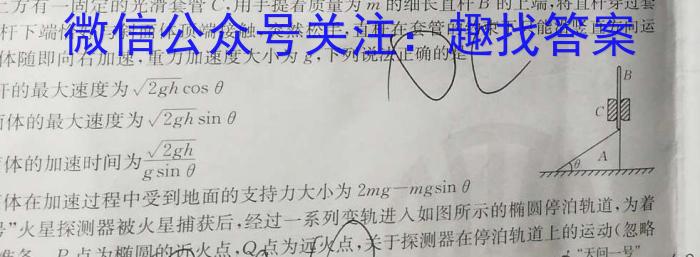 上方有一固定的光滑套管C,用手提着质量为m的细长直杆B的上端,将直杆穿过套
微信公众号关注:趣找答案
体随即向右加速,重力加速度大小为g,下列说法正确的是
杆的最大速度为√2gh cos θ
面体的最大速度为√2gh sin θ
体的加速时间为√2gh/(g sin θ)
体在加速过程中受到地面的支持力大小为2mg-mgsin θ
B
C
A
θ
号"火星探测器被火星捕获后,经过一系列变轨进入如图所示的椭圆停泊轨道,为着
P点为椭圆的近火点,Q点为远火点,关于探测器在停泊轨道上的运动(忽略
"天问一号"